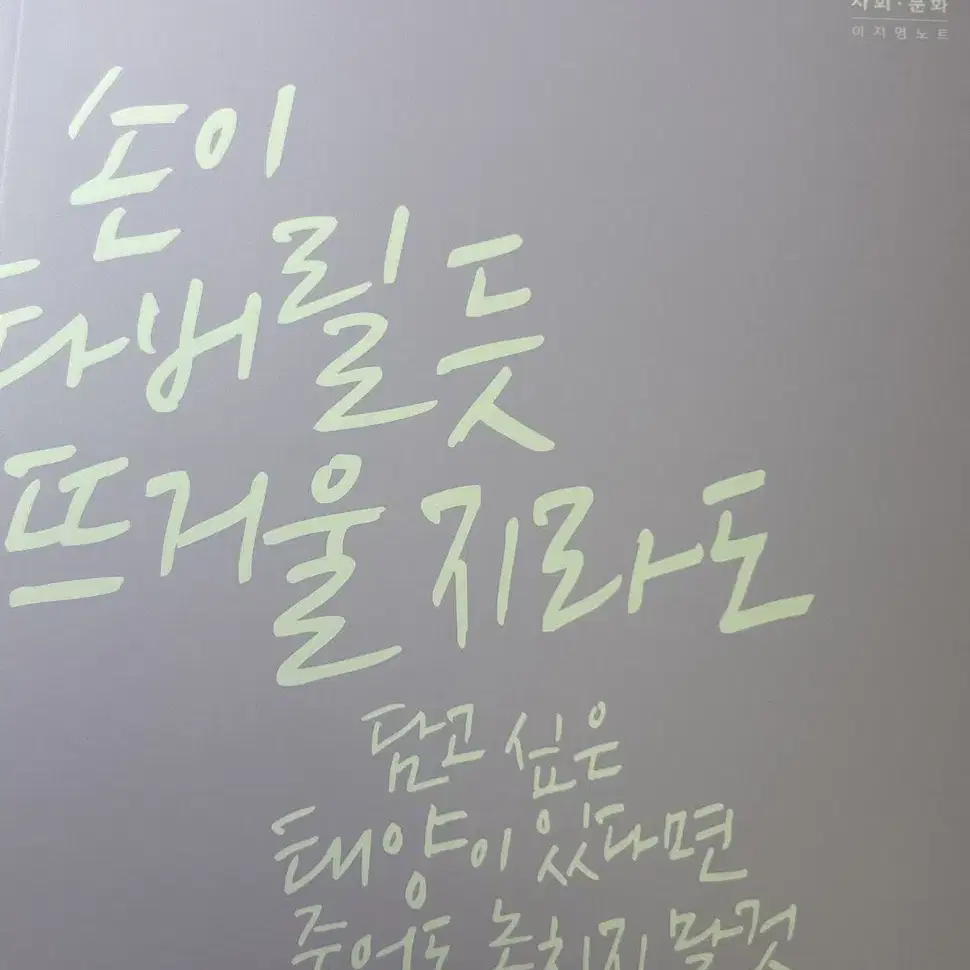 사회·문화
이지영노트
손이
타버릴 듯
뜨거울지라도
담고 싶은
태양이 있다면
죽어도 놓치지 말 것